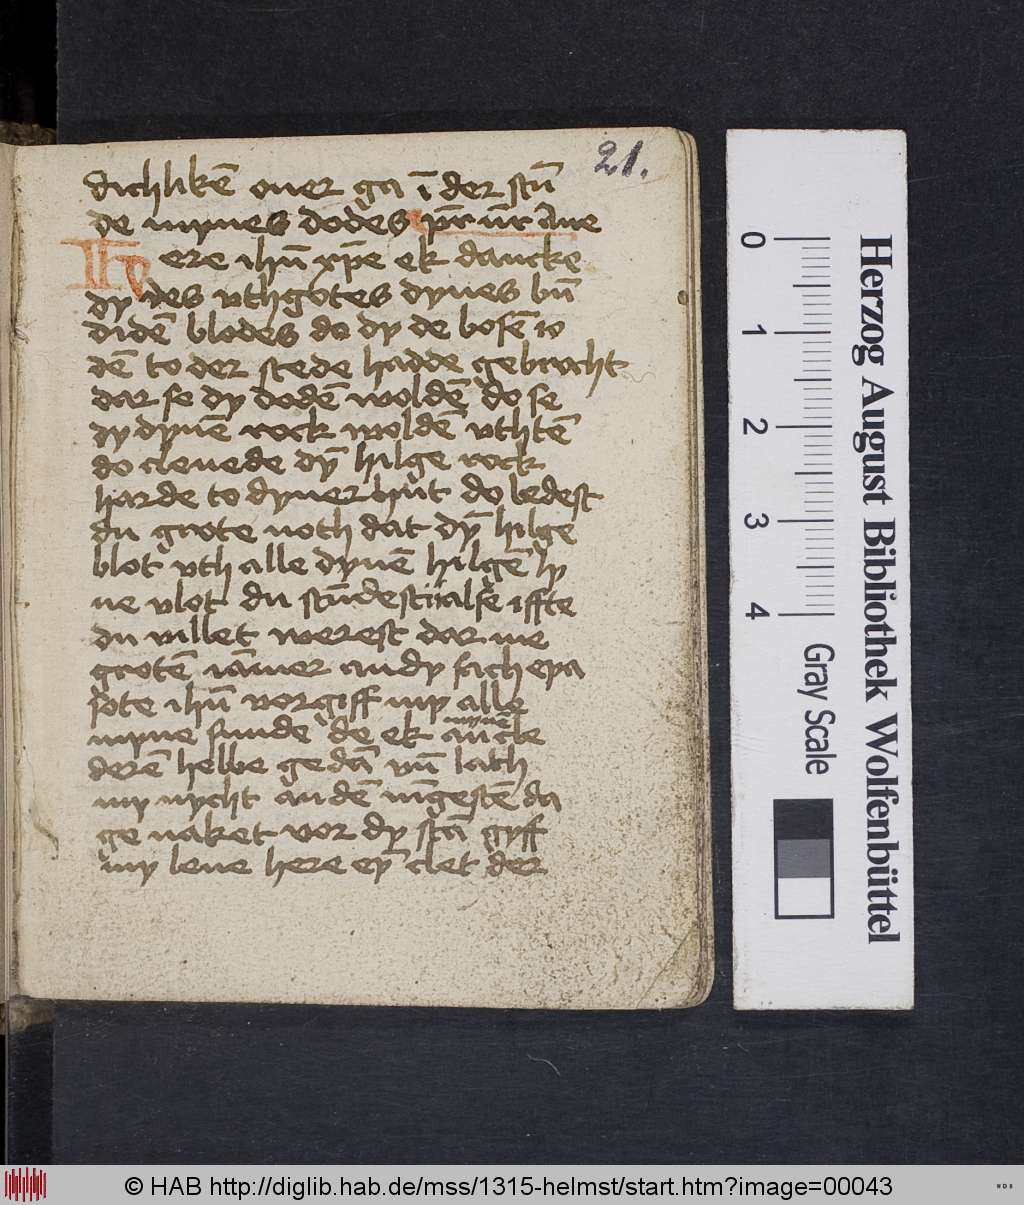 21.
dichlikē ouer ga ī der stū
de mynes dodes pr̄ nr̄ Aue
Here ihū xp̄e ek dancke
dy des vthgotes dynes bū
didē blodes do dy de bosē io
dē to der stede hadde gebrocht
dar se dy dodē woldē do se
dy dynē rock woldē vthtē
do cleuede dȳ hilge rock
harde to dyner hut do ledest
du grote noth dat dȳ hilge
blot vth alle dynē hilgē ly
ue vlot du stūdest alse iffte
du villet werest dar me
grotē iāmer an dy sach eya
sote ihū vorgiff my alle
myne sunde de ek an mynē cle
derē hebbe gedā vn̄ lath
my nycht an dē iūgestē da
ge naket vor dy stā gyff
my leue here eȳ clet der
Herzog August Bibliothek Wolfenbüttel
0 1 2 3 4
Gray Scale
© HAB http://diglib.hab.de/mss/1315-helmst/start.htm?image=00043